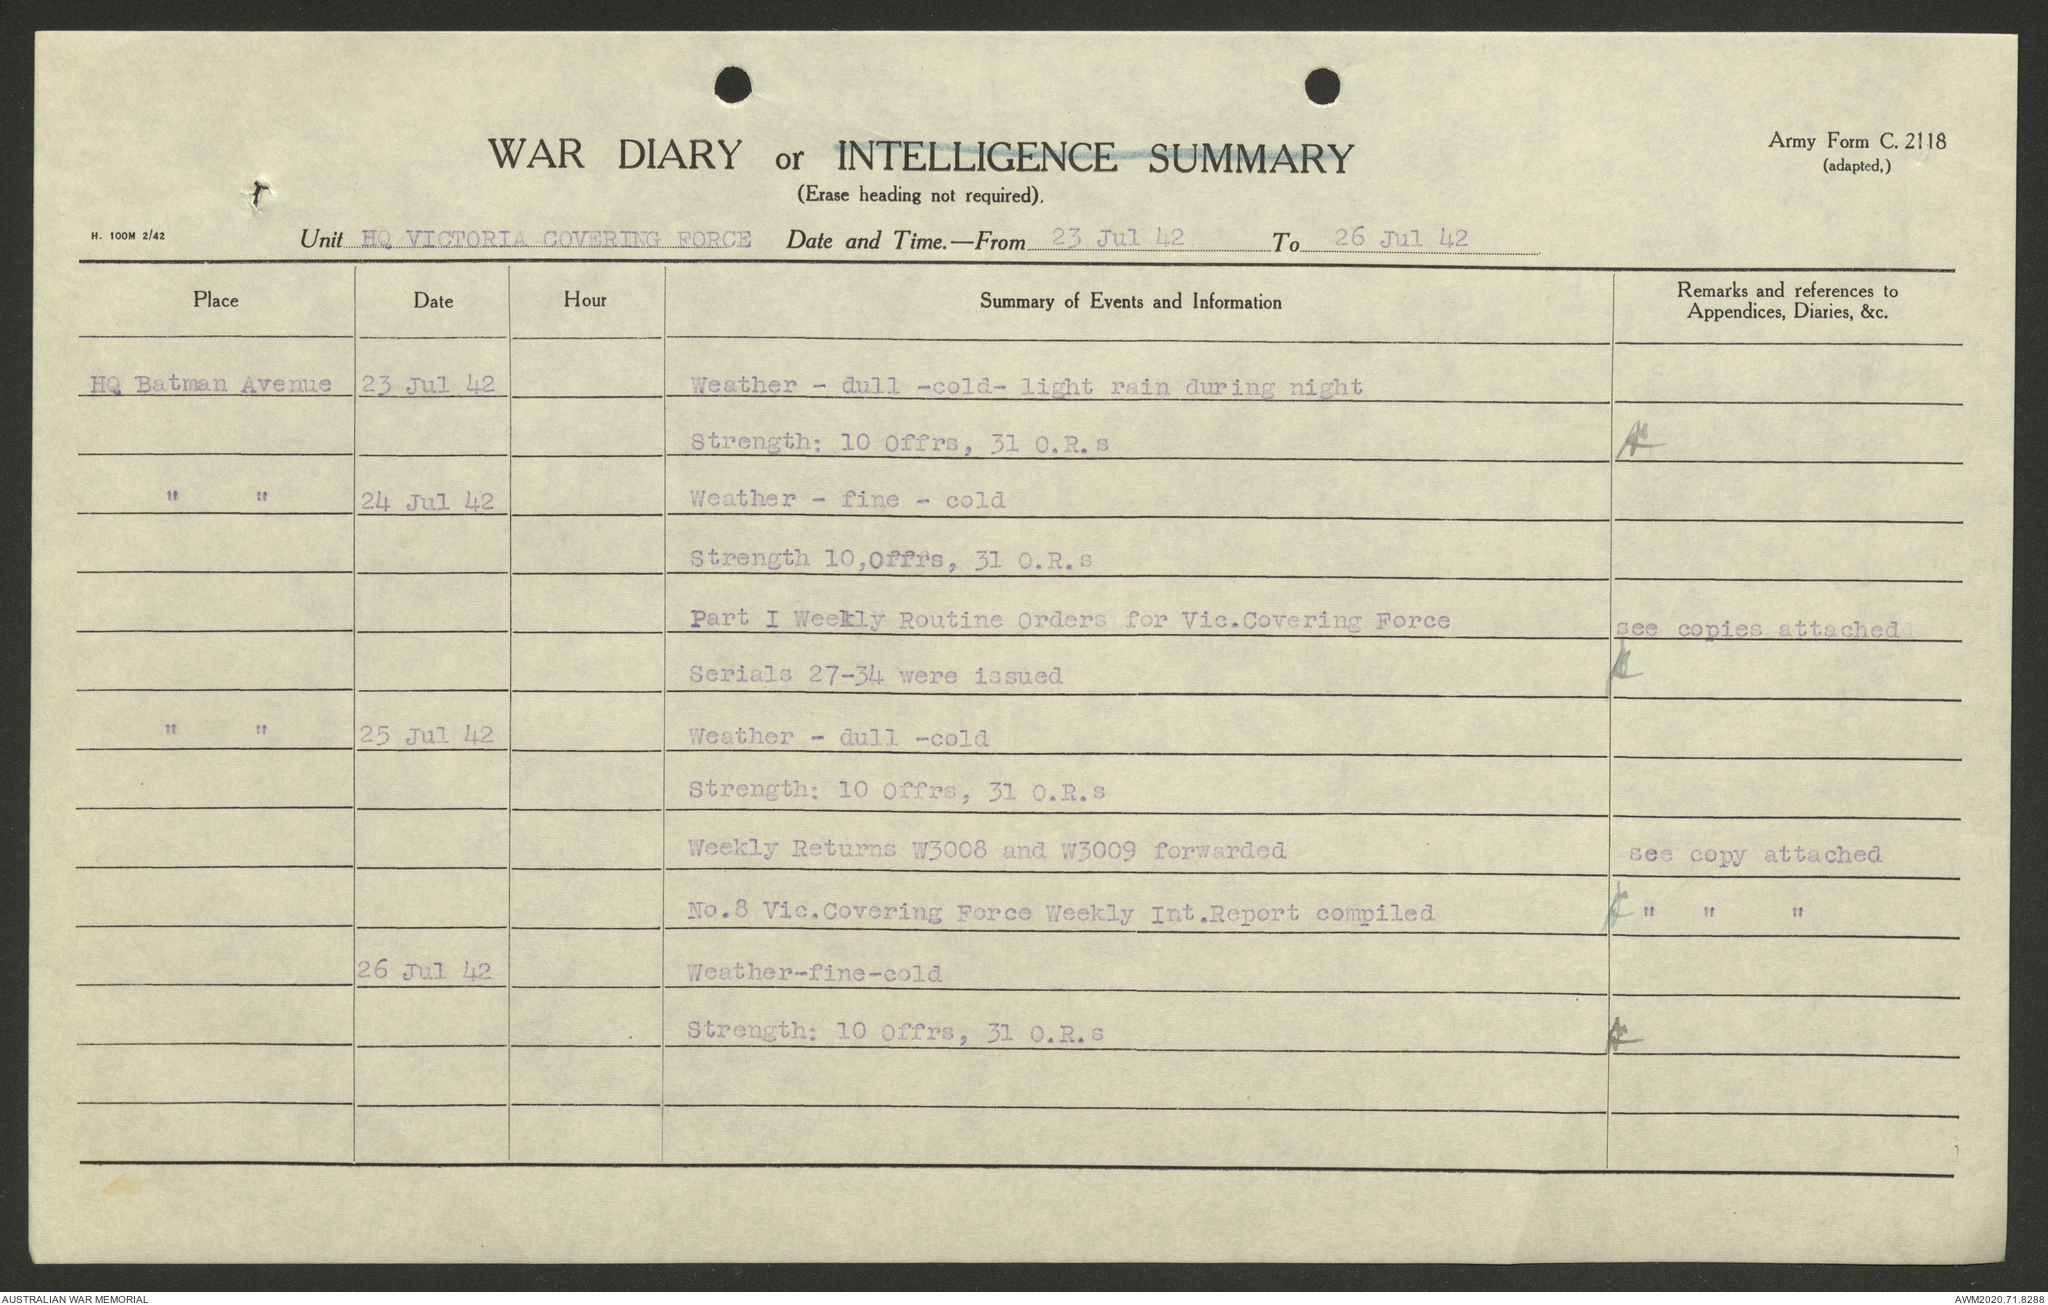 WAR DIARY or INTELLIGENCE SUMMARY
(Erase heading not required).
Army Form C. 2118
(adapted,)
H. 100M 2/42
Unit HQ VICTORIA COVERING FORCE Date and Time.—From 23 Jul 42 To 26 Jul 42
Place Date Hour Summary of Events and Information Remarks and references to Appendices, Diaries, &c.
HQ Batman Avenue 23 Jul 42 Weather - dull -cold- light rain during night
Strength: 10 Offrs, 31 O.R.s
" " 24 Jul 42 Weather - fine - cold
Strength 10,Offrs, 31 O.R.s
Part I Weekly Routine Orders for Vic.Covering Force see copies attached
Serials 27-34 were issued
" " 25 Jul 42 Weather - dull -cold
Strength: 10 Offrs, 31 O.R.s
Weekly Returns W3008 and W3009 forwarded see copy attached
No.8 Vic.Covering Force Weekly Int.Report compiled " " "
26 Jul 42 Weather-fine-cold
Strength: 10 Offrs, 31 O.R.s
AUSTRALIAN WAR MEMORIAL
AWM2020.71.8288